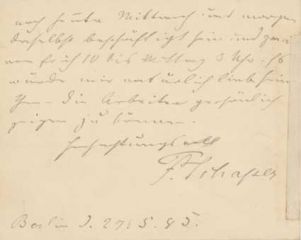 noch heute Mittwoch und morgen
daselbst beschäftigt sein und zwar
von früh 10 bis Mittag 3 Uhr. Es
würde mir natürlich lieb sein
Ihnen die Arbeiten persönlich
zeigen zu können.
Hochachtungsvoll
F. Schaper
Berlin d. 27/5. 85.